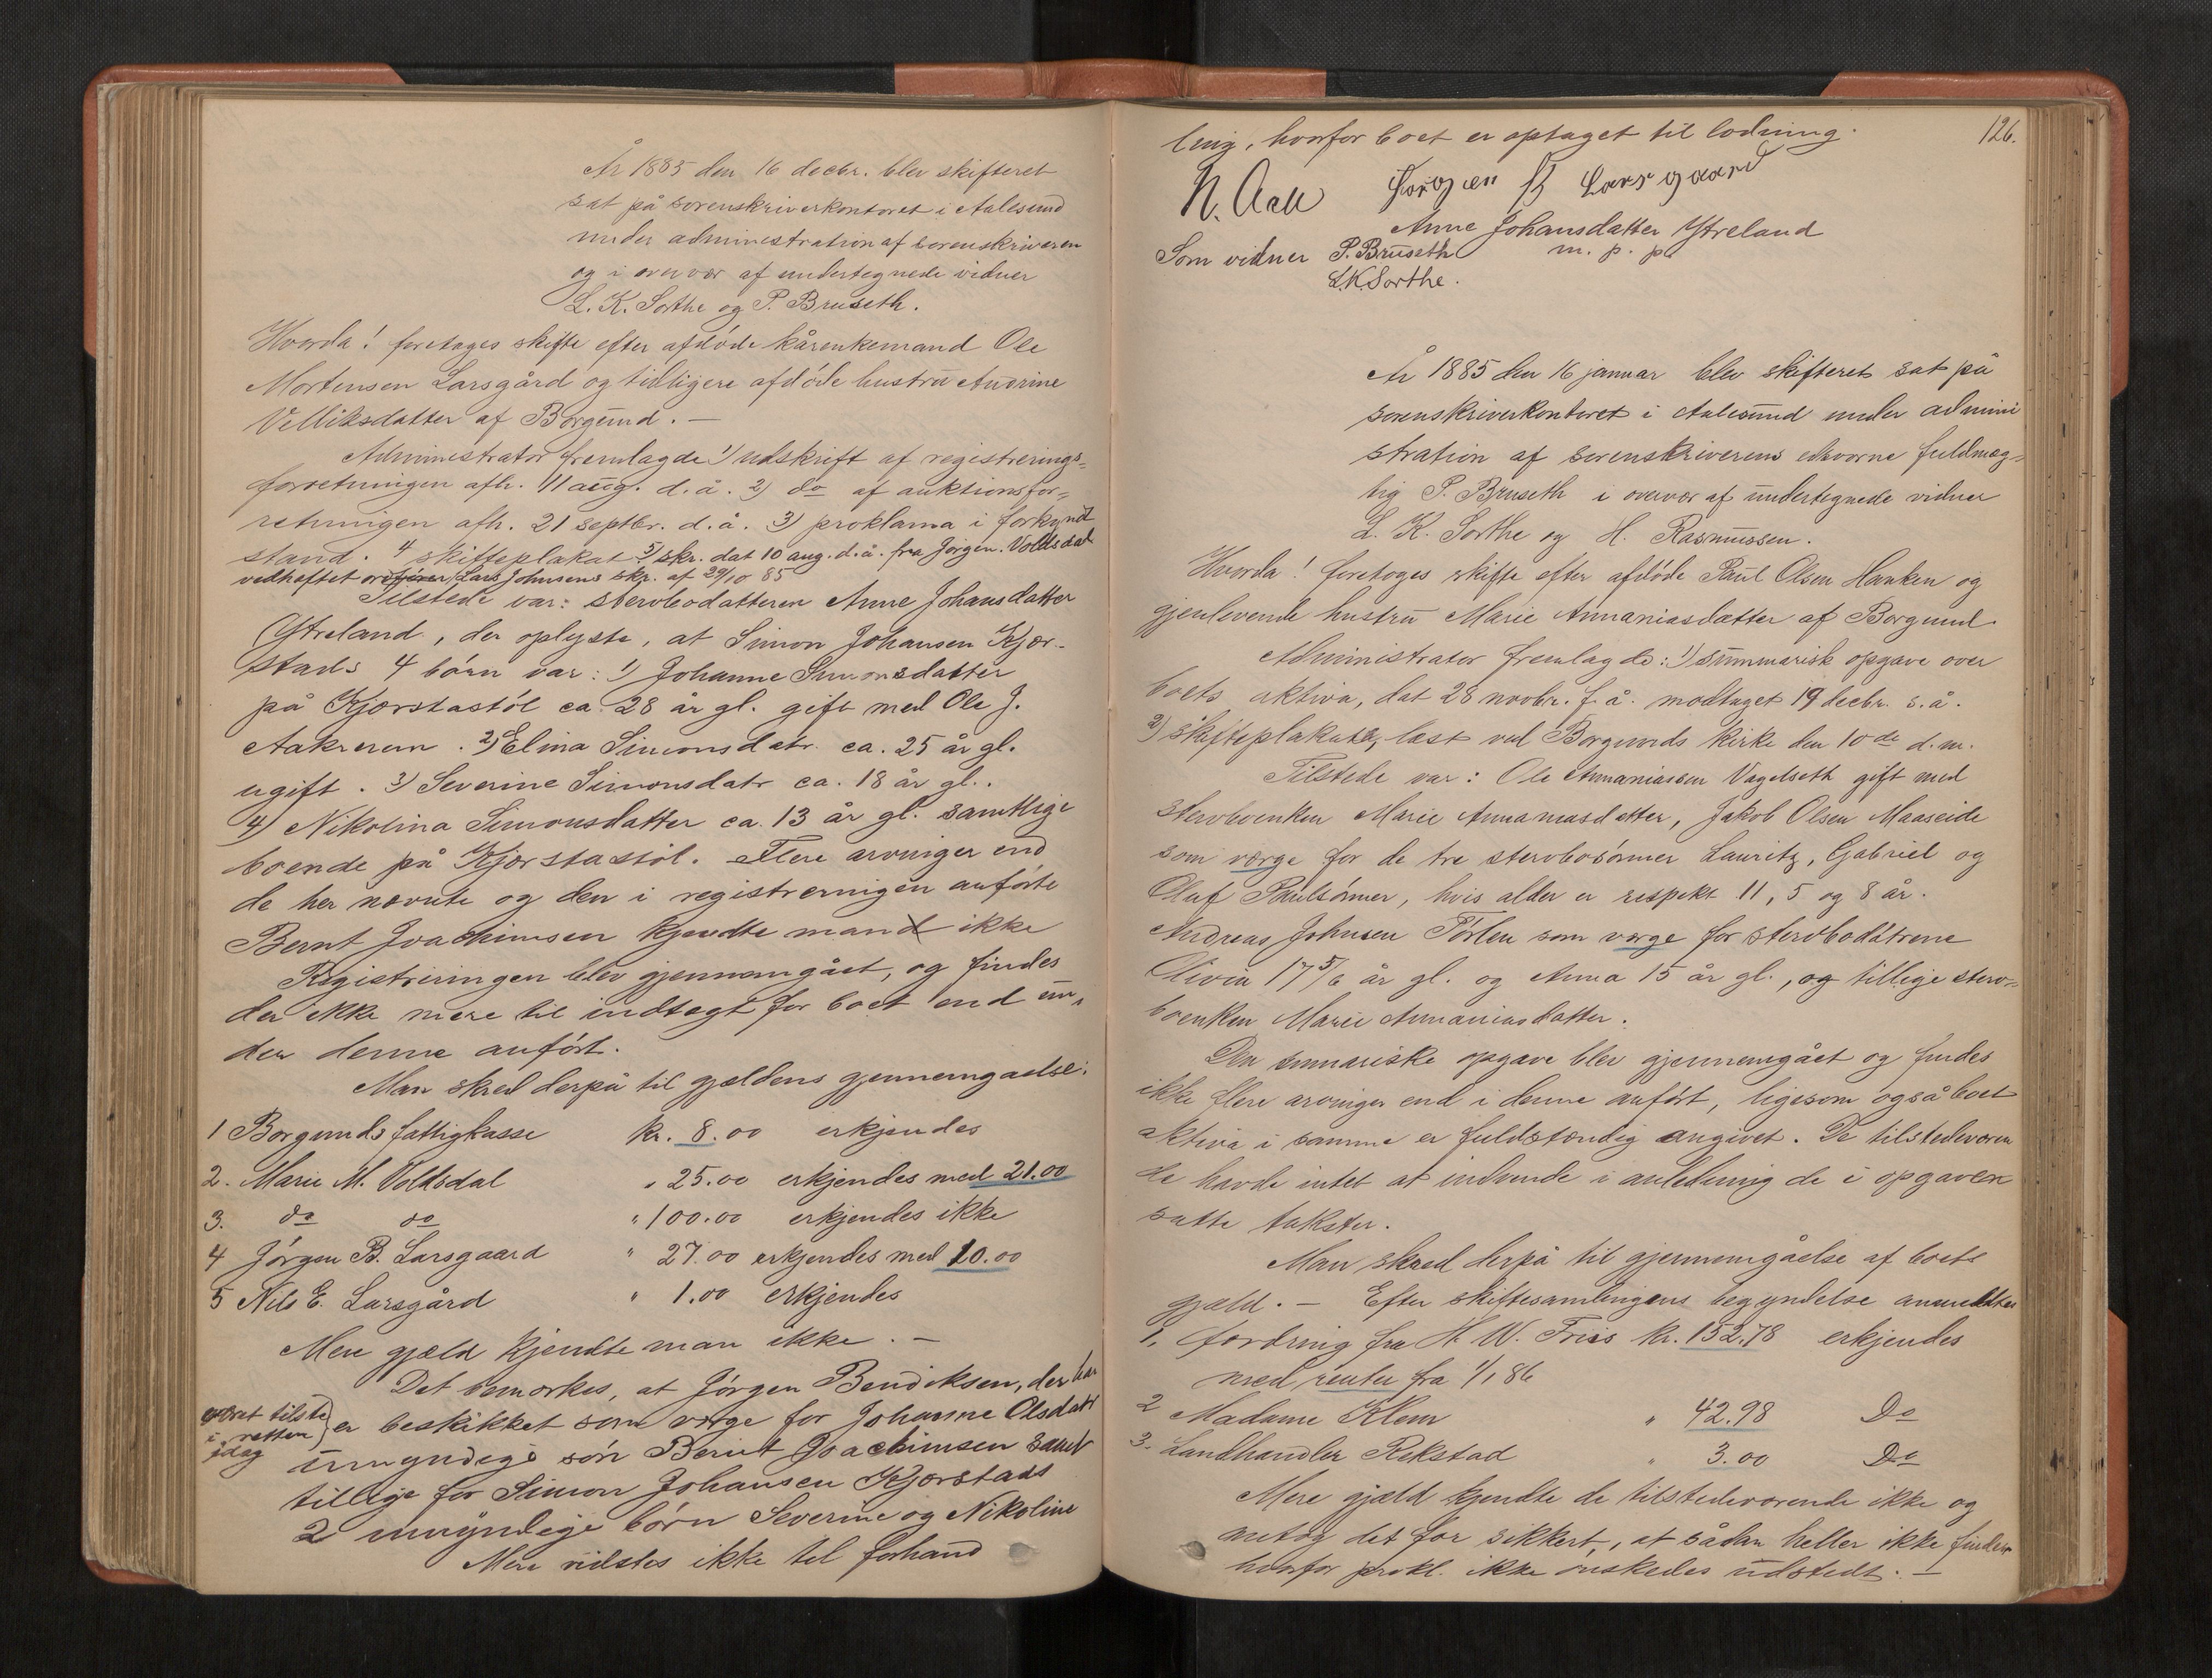 År 1885 den 16 decbr. blev skifteret
sat på sorenskriverkontoret i Aalesund
under administration af sorenskriveren
og i overvær af undertegnede vidner
L. K. Sorthe og P. Bruseth.
Hvorda! foretoges skifte efter afdöde kårenkemand Ole
Mortensen Larsgård og tidligere afdöde hustru Andrine
Velliksdatter af Borgund. —
Administrator fremlagde 1) udskrift af registrerings=
forretningen afh. 11 aug. d. å. 2) do af auktionsfor=
retningen afh. 21 septbr. d. å. 3) proklama i forkyndt
stand. 4 skifteplakat 5) skr. dat 10 aug. d. å. fra Jörgen Voldsdal
vedheftet Lars Johnsens skr. af 29/10 85
Tilstede var: stervbodatteren Anne Johansdatter
Ytreland, der oplyste, at Simon Johansen Kjær-
stads 4 börn var: 1) Johanne Simonsdatter
på Kjærstastöl ca. 28 år gl. gift med Ole J.
Aakrerem. 2) Elina Simonsdatr. ca. 25 år gl.
ugift. 3) Severine Simonsdatr ca. 18 år gl.
4) Nikolina Simonsdatter ca. 13 år gl. samtlige
boende på Kjærstastöl. Flere arvinger end
de her nævnte og den i registreringen anförte
Bernt Joachimsen kjendte man ikke
Registreringen blev gjennemgået, og findes
der ikke mere til indtægt for boet end un-
der denne anfört.
Man skred derpå til gjældens gjennemgaaelse:
1 Borgunds fattigkasse kr. 8.00 erkjendes
2. Marie M. Voldsdal " 25.00 erkjendes med 21.00
3. do do " 100.00 erkjendes ikke
4 Jörgen B. Larsgaard " 27.00 erkjendes med 10.00
5 Nils E. Larsgård " 1.00 erkjendes
Mere gjæld kjendte man ikke. —
Det bemærkes, at Jörgen Bendiksen, der har
været tilstede i retten idag) er beskikket som værge for Johanne Olsdatr
umyndige sön Bernt Joachimsen samt
tillige for Simon Johansen Kjærstads
2 umyndige börn Severine og Nikoline
Mere vidstes ikke til forhand
126.
ling, hvorfor boet er optaget til lodning.
N. Aall Jörgen B Larsgaard
Anne Johansdatter Ytreland
m. p. p.
Som vidner P. Bruseth
L.K. Sorthe.
År 1885 den 16 januar blev skifteret sat på
sorenskriverkontoret i Aalesund under admini
stration af sorenskriverens edsvorne fuldmæg-
tig P. Bruseth i overvær af undertegnede vidner
L. K. Sorthe og H. Rasmussen.
Hvorda! foretoges skifte efter afdöde Paul Olsen Hanken og
gjenlevende hustru Marie Annaniasdatter af Borgund.
Administrator fremlagde: 1) summarisk opgave over
boets aktiva, dat 28 novbr. f. å. modtaget 19 decbr. s. å.
2) skifteplakat, læst ved Borgunds kirke den 10de d. m.
Tilstede var: Ole Annaniassen Vagelseth gift med
stervboenken Marie Annaniasdatter, Jakob Olsen Maaseide
som værge for de tre stervbosönner Lauritz, Gabriel og
Oluf Paulsönner, hvis alder er respekt 11, 5 og 8 år.
Andreas Johnsen Törlen som værge for stervbodötrene
Olivia 17 5/6 år gl. og Anna 15 år gl., og tillige sterv-
boenken Marie Annaniasdatter.
Den sumariske opgave blev gjennemgået og findes
ikke flere arvinger end i denne anfört, ligesom også boet
aktiva i samme er fuldstændig angivet. De tilstedeværen
de havde intet at indvende i anledning de i opgaven
satte takster.
Man skred derpå til gjennemgåelse af boets
gjæld. — Efter skiftesamlingens begyndelse anmeldtes
1. fordring fra H. W. Friis kr. 152.78 erkjendes
med renter fra 1/1 86
2 Madame Klem " 42.98 Do
3. Landhandler Rekstad " 3.00 Do
Mere gjæld kjendte de tilstedeværende ikke og
antog det for sikkert, at sådan heller ikke findes
hvorfor prokl. ikke önskedes udstedt. —